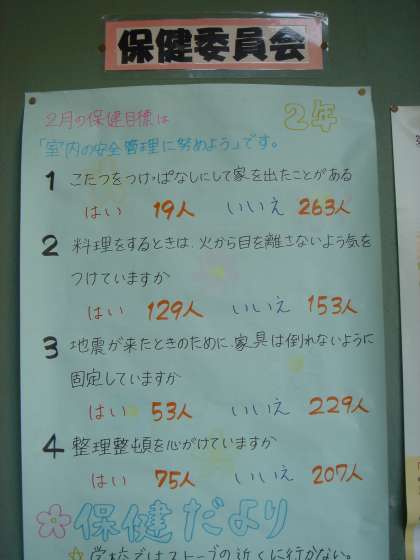 保健委員会
2年
2月の保健目標は
「室内の安全管理に努めよう」です。
1 こたつをつけっぱなしにして家を出たことがある
はい 19人 いいえ 263人
2 料理をするときは、火から目を離さないよう気を
つけていますか
はい 129人 いいえ 153人
3 地震が来たときのために、家具は倒れないように
固定していますか
はい 53人 いいえ 229人
4 整理整頓を心がけていますか
はい 75人 いいえ 207人
保健だより
学校ではストーブの近くに行かない。